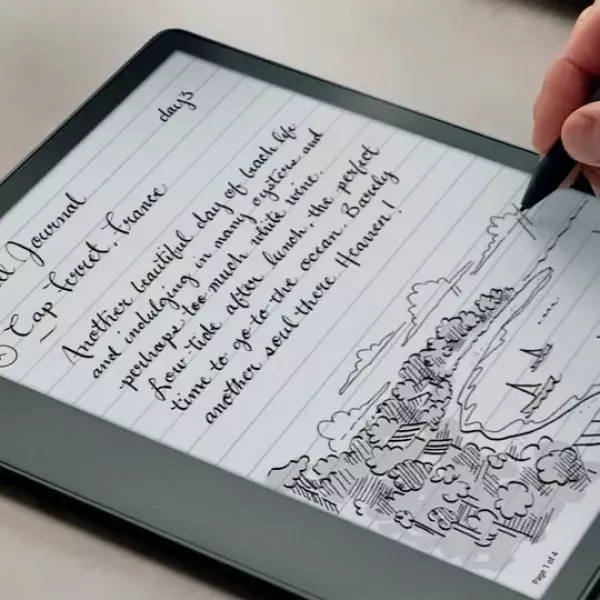 day 3
Journal
Cap Ferret, France
Another beautiful day of beach life
and indulging in many oysters and
perhaps too much white wine.
Low-tide after lunch, the perfect
time to go to the ocean. Barely
another soul there. Heaven!
Page 1 of 4